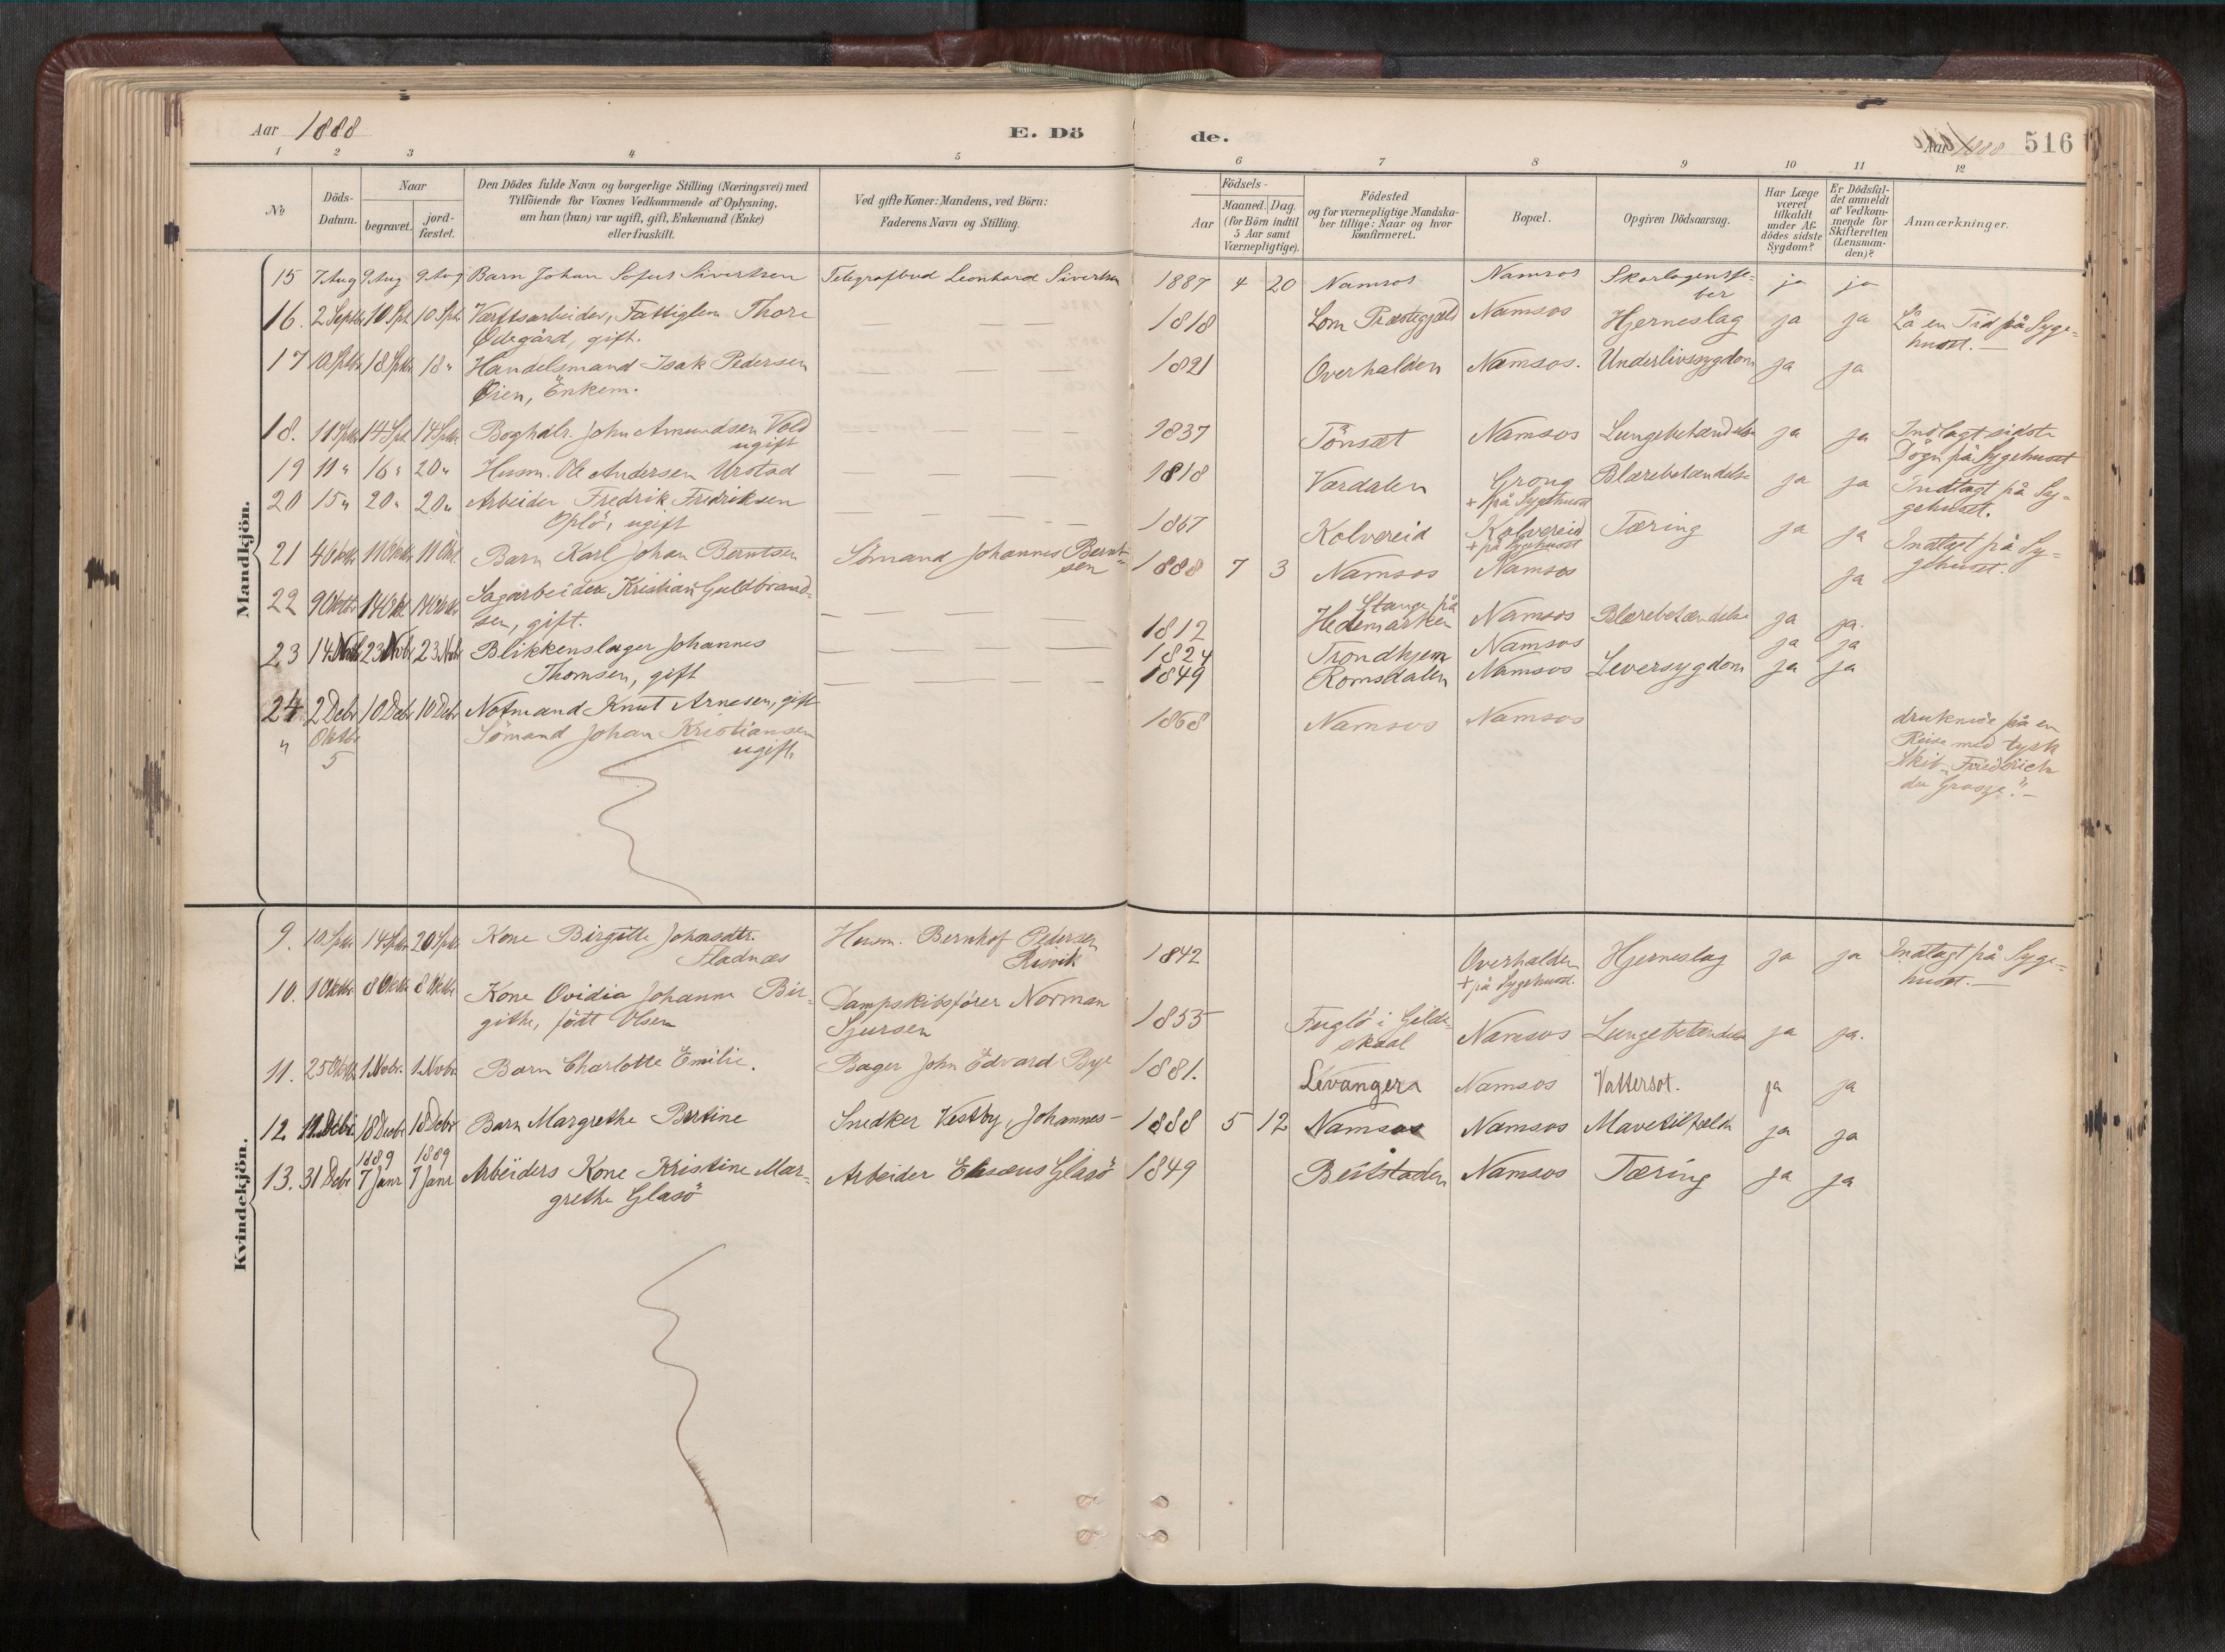 Aar 1888
E. Dö
de.
Aar 1888 516
1 2 3 4 5 6 7 8 9 10 11 12
№
Döds-
Datum.
Naar
begravet.
jord-
fæstet.
Den Dödes fulde Navn og borgerlige Stilling (Næringsvei) med
Tilföiende for Voxnes Vedkommende af Oplysning,
om han (hun) var ugift, gift, Enkemand (Enke)
eller fraskilt.
Ved gifte Koner: Mandens, ved Börn:
Faderens Navn og Stilling.
Födsels-
Aar
Maaned. Dag.
(for Börn indtil
5 Aar samt
Værnepligtige).
Födested
og for værnepligtige Mandska-
ber tillige: Naar og hvor
konfirmeret.
Bopæl.
Opgiven Dödsaarsag.
Har Læge
været
tilkaldt
under Af-
dödes sidste
Sygdom?
Er Dödsfal-
det anmeldt
af Vedkom-
mende for
Skifteretten
(Lensman-
den)?
Anmærkninger.
Mandkjön.
15 7 Aug 9 Aug 9 Aug Barn Johan Sofus Sivertsen Telegrafbud Leonhard Sivertsen 1887 4 20 Namsos Namsos Skarlagensfe-
ber ja ja
16. 2 Septbr 10 Spt 10 Spt Værftsarbeider, Fattiglem Thore — — — — 1818 Lom Præstegjæld Namsos Hjerneslag ja ja Lå en Tid på Syge-
Ödegård, gift. huset.—
17 10 Sptbr 18 Sptbr 18 " Handelsmand Isak Pedersen — — — — 1821 Overhalden Namsos. Underlivssygdom ja ja
Øien, Enkem.
18. 11 Sptbr 14 Spt 14 Sptbr Boghdlr. John Amundsen Vold — — — — 1837 Tönsæt Namsos Lungebetændelse ja ja Indlagt sidste
ugift Dögn på Sygehuset
19 11 " 16 " 20 " Husm. Ole Andersen Urstad — — — — 1818 Værdalen Grong Blærebetændelse ja ja Indlagt på Sy-
+ på Sygehuset gehuset.
20 15 " 20 " 20 " Arbeider Fredrik Fredriksen — — — — 1867 Kolvereid Kolvereid Tæring ja ja Indlagt på Sy-
Oplö, ugift + på Sygehuset gehuset.
21 4 Oktbr 11 Oktbr 11 Okt. Barn Karl Johan Berntsen Sömand Johannes Bernt-
sen 1888 7 3 Namsos Namsos ja
22 9 Oktbr 14 Okt 14 Oktbr Sagarbeider Kristian Guldbrand- — — — — 1812 Stange på
sen, gift. Hedemarken Namsos Blærebetændelse ja ja.
23 14 Nobr 23 Nobr 23 Nobr Blikkenslager Johannes — — — — 1824 Trondhjem Namsos ja ja
Thomsen, gift
24 2 Debr 10 Debr 10 Debr Notmand Knut Arnesen, gift — — — — 1849 Romsdalen Namsos Leversygdom ja ja
" Oktbr
5 Sömand Johan Kristiansen 1868 Namsos Namsos druknede på en
ugift. Reise med tysk
Skib „Friedrich
der Grosze".—
Kvindekjön.
9. 10 Sptbr 14 Sptbr 20 Sptbr Kone Birgitte Johnsdtr. Husm. Bernhof Pedersen 1842 Overhalden Hjerneslag ja ja Indlagt på Syge-
Fladnæs Risvik + på Sygehuset. huset.—
10. 1 Oktbr 8 Oktbr 8 Oktbr Kone Ovidia Johanne Bir- Dampskibsförer Norman 1855 Fuglö i Gilde-
githe, födt Olsen Sjursen skaal Namsos Lungebetændelse ja ja.
11. 25 Oktbr 1 Nobr. 1 Nobr Barn Charlotte Emilie. Bager John Edvard Bye 1881. Levanger Namsos Vattersot. ja ja
12 11 Debr 18 Debr 18 Debr Barn Margrethe Bertine Snedker Vestby, Johannes- 1888 5 12 Namsos Namsos Mavetilfælde ja ja
13. 31 Debr 1889
7 Janr 1889
7 Janr Arbeiders Kone Kristine Mar- Arbeider Elisæus Glasö 1849 Beitstaden Namsos Tæring ja ja
grethe Glasö